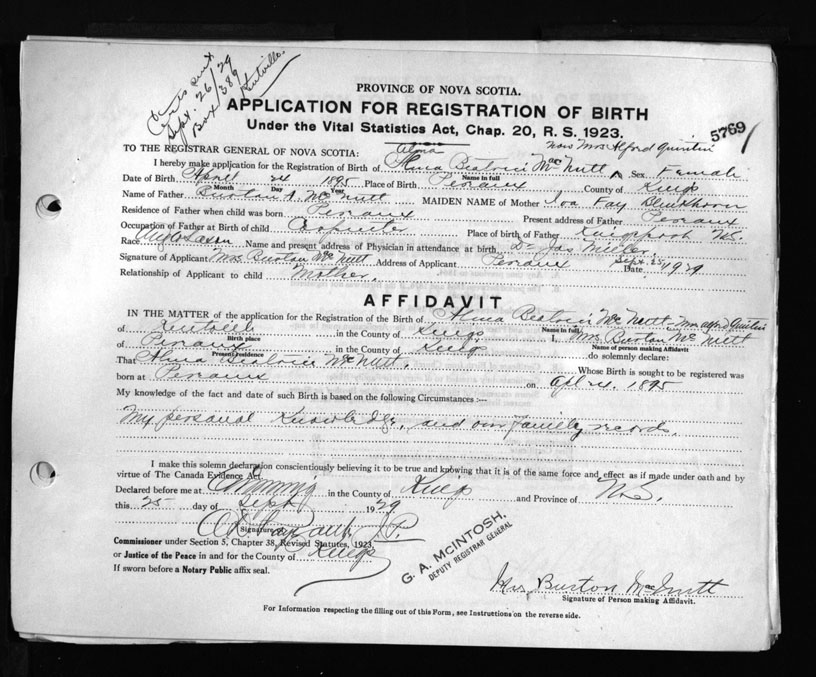 Sept. 26/29
Box 389
Kentville.
PROVINCE OF NOVA SCOTIA.
APPLICATION FOR REGISTRATION OF BIRTH
Under the Vital Statistics Act, Chap. 20, R. S. 1923.
5769
Alma
now Mrs Alford Quintin
TO THE REGISTRAR GENERAL OF NOVA SCOTIA:
I hereby make application for the Registration of Birth of Alma Beatrice MacNutt Sex Female
Name in full
Date of Birth April 24 1895 Place of Birth Pereaux County of Kings
Month Day Year
Name of Father Burton A. McNutt MAIDEN NAME of Mother Fay
Residence of Father when child was born Pereaux Present address of Father Pereaux
Occupation of Father at Birth of Child Carpenter Place of birth of Father Kingsport N.S.
Race Anglo Saxon Name and present address of Physician in attendance at birth Dr Jas Miller
Signature of Applicant Mrs. Burton McNutt Address of Applicant Pereaux Date Sept. 25 1929
Relationship of Applicant to child Mother.
AFFIDAVIT
IN THE MATTER of the application for the Registration of the Birth of Alma Beatrice McNutt, Mrs Alfred Quintin
Name in full
of in the County of Kings I, Mrs Burton McNutt
Birth place
of Pereaux in the County of Kings do solemnly declare:
Present residence
Name of person making Affidavit
That Alma Beatrice McNutt. Whose Birth is sought to be registered was
born at Pereaux on Apl 24. 1895
My knowledge of the fact and date of such Birth is based on the following Circumstances :—
My personal knowledge, and our family records.
I make this solemn declaration conscientiously believing it to be true and knowing that it is of the same force and effect as if made under oath and by
virtue of The Canada Evidence Act.
Declared before me at Canning in the County of Kings and Province of N.S.
this 25 day of Sept 1929
Signature
J.P.
Commissioner under Section 5, Chapter 38, Revised Statutes, 1923,
or Justice of the Peace in and for the County of Kings
If sworn before a Notary Public affix seal.
G. A. McINTOSH,
DEPUTY REGISTRAR GENERAL
Mrs Burton MacNutt
Signature of Person making Affidavit.
For Information respecting the filling out of this Form, see Instructions on the reverse side.